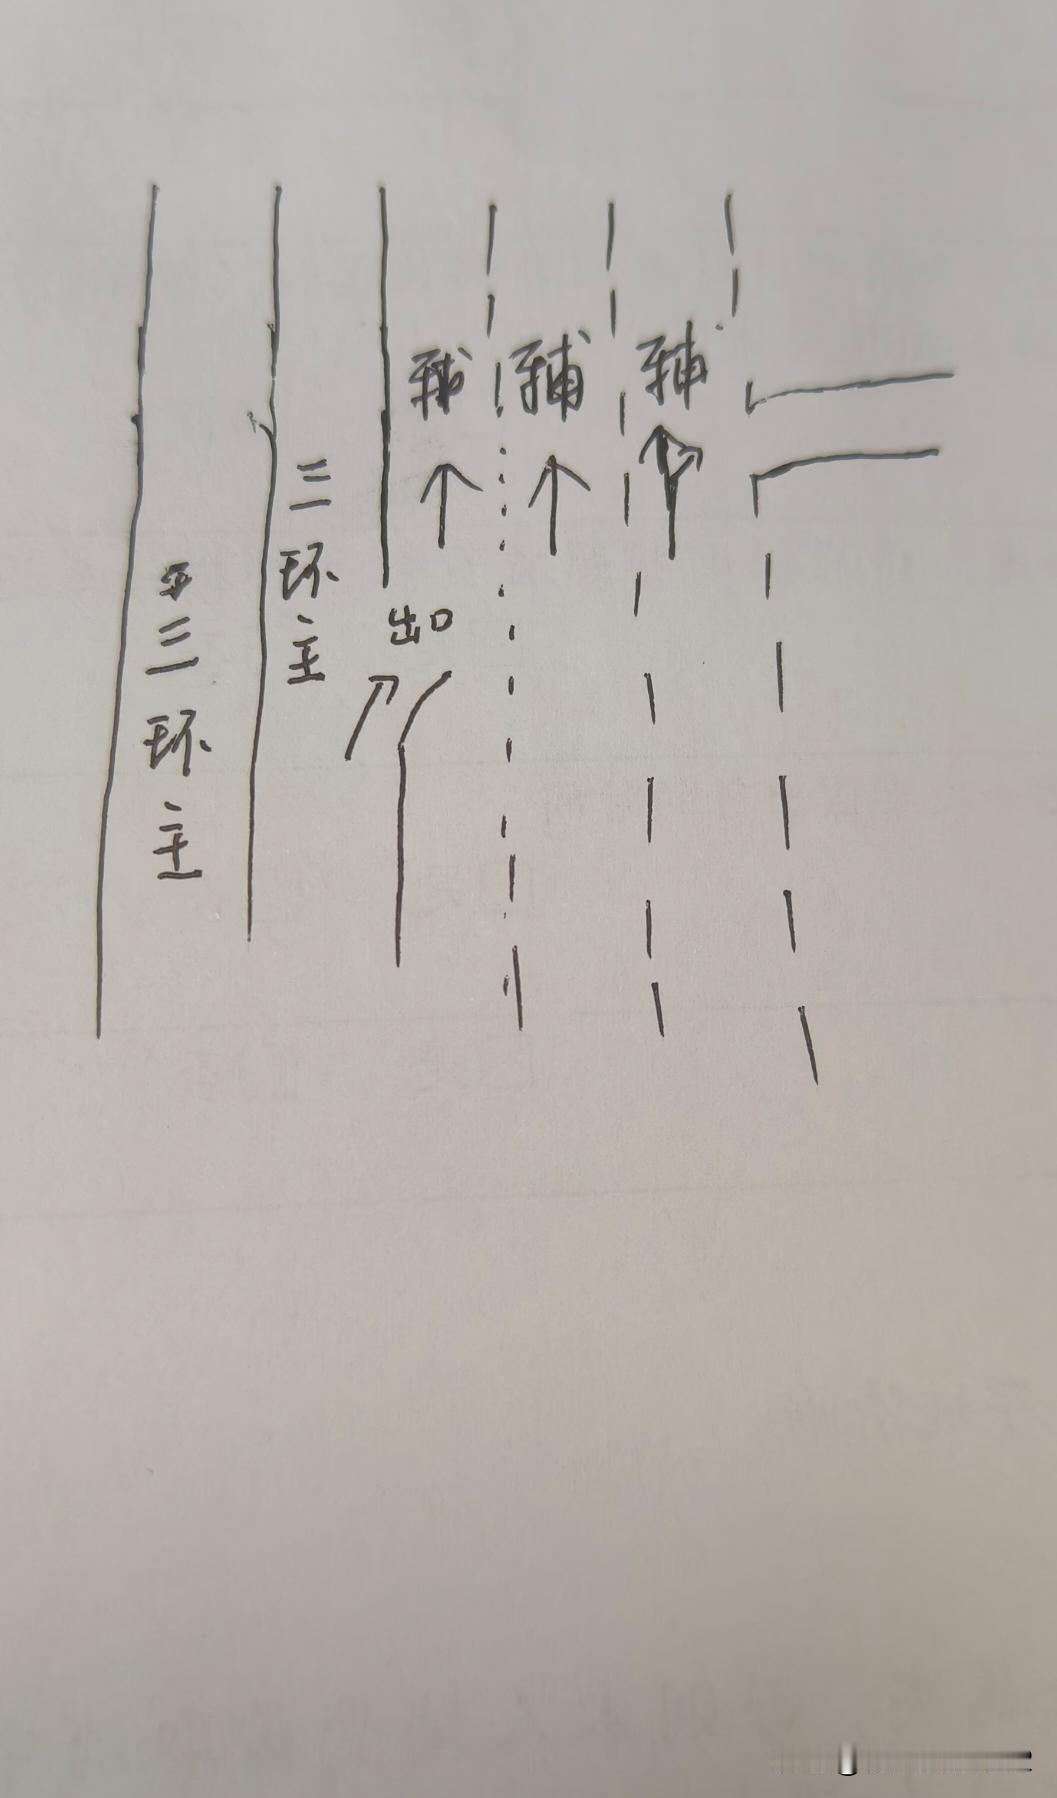 辅 辅 辅
三环主
出口
三环主